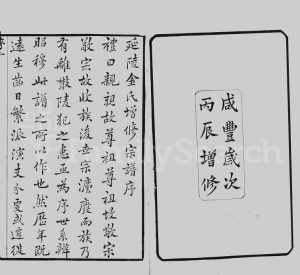 咸豐歲次
丙辰增修
延陵金氏增修宗譜序
禮曰親親故尊祖尊祖故敬宗
敬宗故收族後世宗灋廢而族乃
有離散陵犯之患且為序世系辨
昭穆此譜之所以作也然歷年既
遠生齒日繁派演支分更或遷徙
FamilySearch